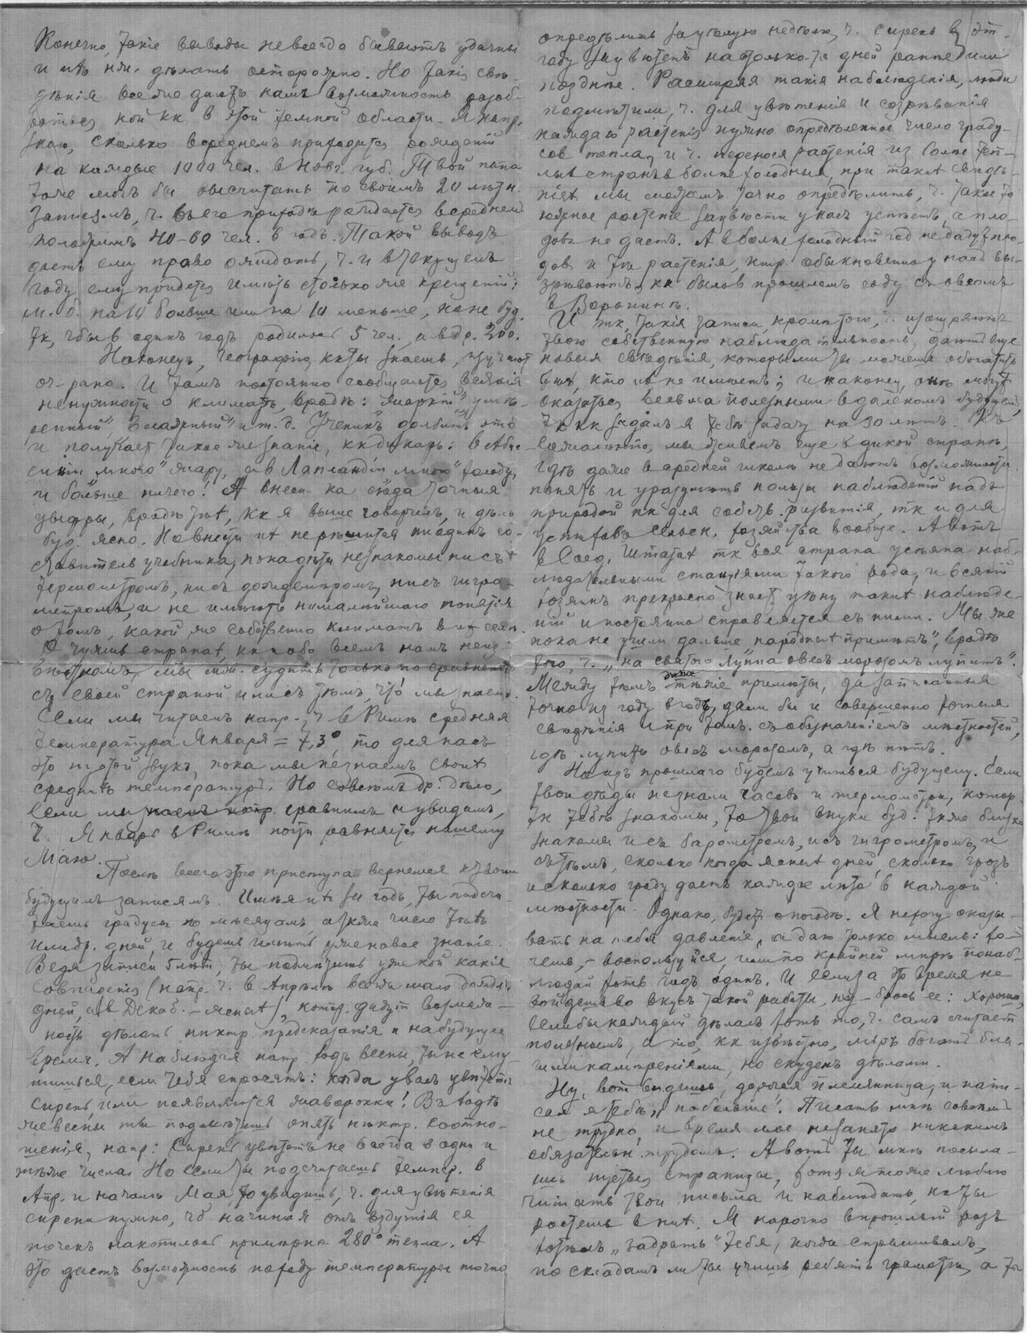 Конечно, такіе выводы не всегда бываютъ удачны
и ихъ нуж. дѣлать осторожно. Но такія свѣ-
дѣнія все же даютъ намъ возможность разоб-
раться кой кк в этой темной области. Я напр.
знаю, сколько в среднемъ приходится рожденій
на каждые 1000 чел. в Новг. губ. Твой папа
тоже могъ бы высчитать по своимъ 20 лѣтн.
записямъ, ч. в его приходѣ рождается в среднемъ
положимъ 40-60 чел. в годъ. Такой выводъ
дастъ ему право ожидать, ч. и в текущемъ
году ему придется имѣть столько же крещеній;
м. б. на 10 больше или на 10 меньше, но не буд.
тк, чбы в одинъ годъ родилось 5 чел. а в др. 200.
Наконецъ, географію, кк ты знаешь, изучают
оч. рано. И тамъ постоянно сообщаются всякія
ненужности о климатѣ, вродѣ: "жаркій", "умѣ-
ренный" и т. д. Ученикъ долбитъ это
и получает такое же знаніе, кк дикарь: в Абис-
синіи много "жару", а в Лапландіи много "холоду,
и больше ничего". А внеси-ка сюда точныя
цыфры, вродѣ тѣхъ, кк я выше говорилъ, и дѣло
буд. ясно. Но внести их не рѣшится ни одинъ со-
ставитель учебника, пока дѣти незнакомы ни съ
термометромъ, ни съ дождемѣромъ, ни съ гигро-
метромъ, и не имѣютъ ни малѣйшаго понятія
о томъ, какой же собственно климатъ в их селѣ.
О чужихъ странахъ, кк и обо всемъ намъ неиз-
вѣстномъ, мы мож. судить только по сравненію
съ своей страной или съ тѣмъ, что мы знаем.
Если мы читаемъ напр., ч. в Римѣ средняя
температура Января = 7,3°, то для насъ
это пустой звукъ, пока мы не знаемъ своихъ
среднихъ температуръ. Но совсѣмъ др. дѣло,
если мы сравнимъ и увидимъ,
ч. Январь в Римѣ почти равняется нашему
Маю.
Послѣ всего этого приступа вернемся к твоим
будущимъ записямъ. Имѣя их за годъ, ты подсчи-
таешь градусы по мѣсяцамъ, а также число тѣхъ
или др. дней, и будешь имѣть уже новое знаніе.
Ведя записи 5 лѣтъ, ты подмѣтишь уже кой какія
совпаденія (напр. ч. в Апрѣлѣ всегда мало дождл.
дней, а в Декаб. - ясных), котор. дадут возмож-
ность дѣлать нѣктр. предсказанія и на будущее
время. А наблюдая напр. годъ весны, ты не сму-
тишься, если тебя спросятъ: когда у васъ цвѣтетъ
сирень, или появляются жаворонки? В годѣ
же весны ты подмѣтишь опять нѣктр. соотно-
шенія, напр: Сирень цвѣтетъ не всегда в одни и
тѣже числа. Но если ты подсчитаешь темпер. в
Апр. и началѣ Мая, то увидишь, ч. для цвѣтенія
сирени нужно, чб начиная отъ вздутія ея
почекъ накопилось примѣрно 280° тепла. А
это даетъ возможность по ходу температуры точно
опредѣлить за цѣлую недѣлю, ч. сирень в эт.
году зацвѣтетъ на столько-то дней ранѣе или
позднѣе. Расширяя такія наблюденія, люди
подмѣтили, ч. для цвѣтенія и созрѣванія
каждаго растенія нужно опредѣленное число граду-
совъ тепла, и ч. перенося растенія из болѣе теп-
лыхъ странъ в болѣе холодныя, при такихъ свѣдѣ-
ніях мы можемъ точно опредѣлить, ч. такое то
южное растеніе зацвѣсти у насъ успѣетъ, а пло-
довъ не дастъ. А в болѣе холодный год не дадутъ пло-
дов и тѣ растенія, ктр. обыкновенно у насъ вы-
зрѣваютъ, кк было в прошлом году съ овсомъ
в Воронинѣ.
И тк, такія записи, кромѣ того, ч. изощряютъ
твою собственную наблюдательность, даютъ еще
новыя свѣдѣнія, которыми ты можешь обогатить
тѣхъ, кто их не имѣетъ; и наконецъ, онѣ могут
оказаться весьма полезными в далеком будущем,
тк кк задалъ я тебѣ задачу на 30 лѣтъ. Къ
сожалѣнію, мы живемъ еще в дикой странѣ,
гдѣ даже в средней школѣ не даютъ возможности
понять и уразумѣть пользы наблюденій надъ
природой кк для собств. развитія, тк и для
успѣховъ сельск. хозяйства вообще. А вотъ
в Соед. Штатах тк вся страна усѣяна наб-
людательными станціями такого рода, и всякій
хозяинъ прекрасно знает цѣну таких наблюде-
ній и постоянно справляется съ ними. Мы же
пока не ушли дальше народных примѣтъ, вродѣ
того ч. "на святого Луппа овесъ морозомъ лупитъ".
Между тѣмъ даже тѣже примѣты, да записанныя
точно из году в годъ, дали бы и совершенно точныя
свѣдѣнія и при томъ съ обозначеніемъ мѣстностей,
гдѣ лупитъ овесъ морозомъ, а гдѣ нѣтъ.
Но изъ прошлаго будемъ учиться будущему. Если
твои дѣды не знали часовъ и термометра, котор.
тк тебѣ знакомы, то твои внуки буд. также близко
знакомы и съ барометромъ, и съ гигрометромъ, и
съ тѣмъ, сколько когда ясныхъ дней, сколько грозъ
и сколько граду даетъ каждое лѣто в каждой
мѣстности. Однако, будет о погодѣ. Я не хочу оказы-
вать на тебя давленіе, а даю только мысль: хо-
чешь, - воспользуйся, или по крайней мѣрѣ понаб-
людай хотя годъ одинъ. И если за это время не
войдешь во вкусъ такой работы, ну - брось ее: хорошо,
если бы каждый дѣлалъ хоть то, ч. самъ считает
полезнымъ, а то, кк извѣстно, міръ богатъ бла-
гими намѣреніями, но скуденъ дѣлами.
Ну, вот видишь, дорогая племянница, и напи-
салъ я тебѣ "побольше". Писать мнѣ совсѣмъ
не трудно, и время мое не занято никакимъ
обязательн. трудомъ. А вот ты мнѣ посыла-
ешь пустыя страницы, хотя я тоже люблю
читать твои письма и наблюдать, кк ты
растешь в них. Я нарочно в прошлый разъ
хотѣлъ "задрать" тебя, когда спрашивалъ,
по складамъ ли ты учишь ребятъ грамотѣ, а ты